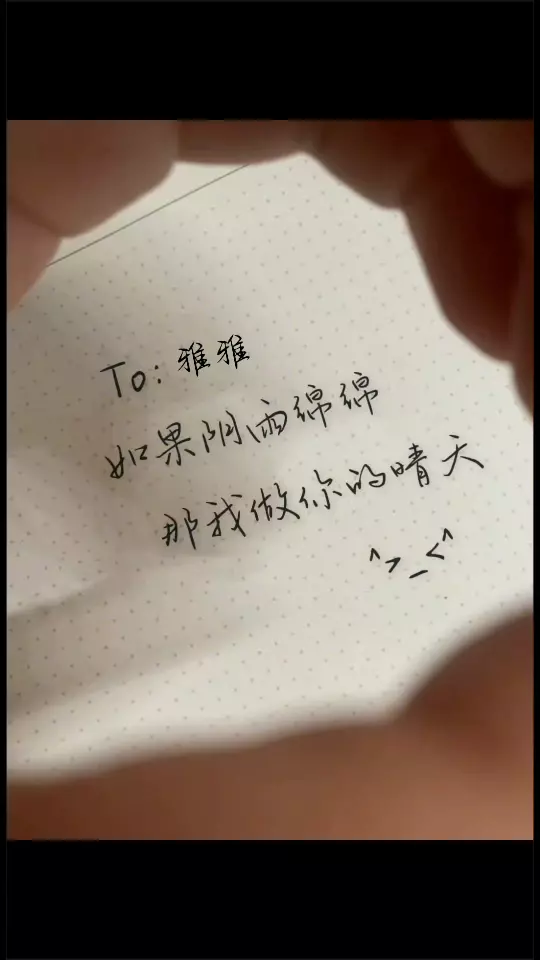 To: 雅雅
如果阴雨绵绵
那我做你的晴天
^>_<^